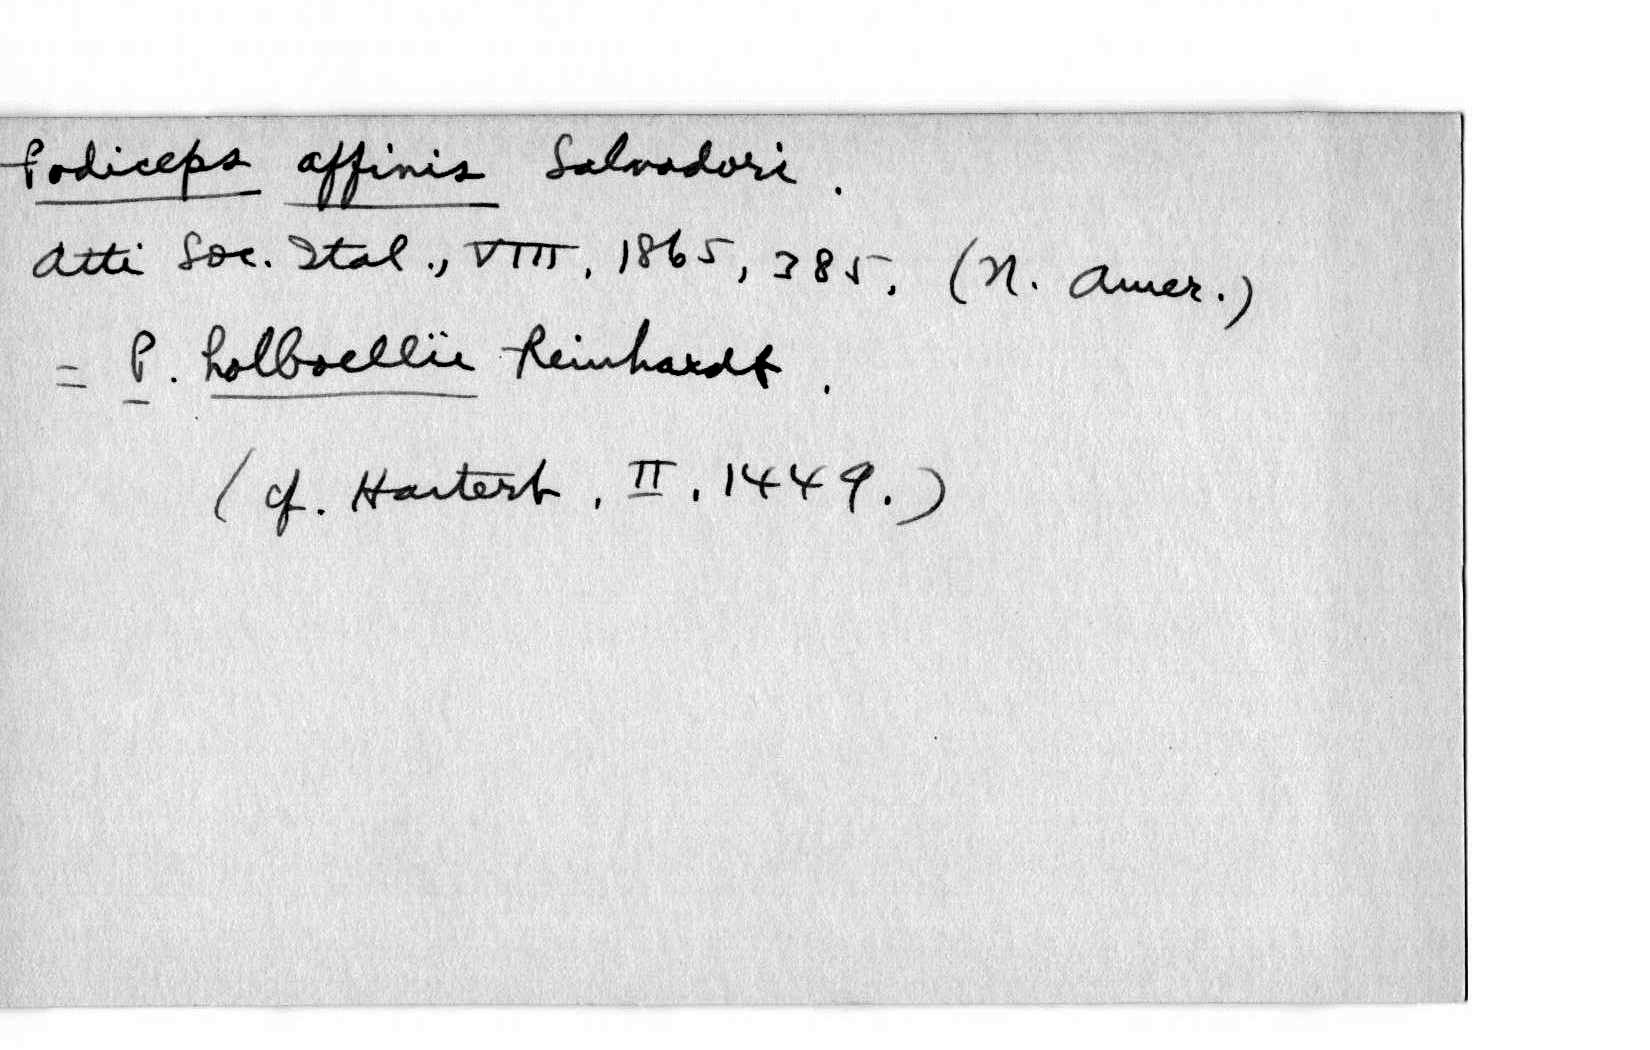 Podiceps affinis Salvadori.
Atti Soc. Ital., VIII, 1865, 385, (N. Amer.)
= P. holboellii Reinhardt.
(cf. Hartert, II, 1449.)